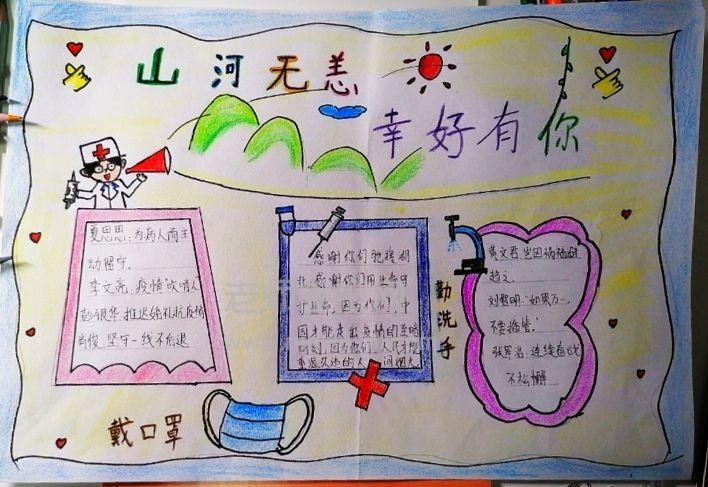 山河无恙
幸好有你
夏思思:为病人而主
动留守。
李文亮:疫情吹哨人
彭银华:推迟婚礼抗疫情
肖俊:坚守一线不后退
感谢你们驰援湖
北,感谢你们用生命守
护生命,因为你们,中
国才能走出疫情的至暗
时刻,因为你们,人民才能
重温久违的人间烟火
勤洗手
黄文君:岂因祸福避
趋之
刘智明:"如果万一,
不要插管。"
张军浩:连续奋战
不松懈
戴口罩